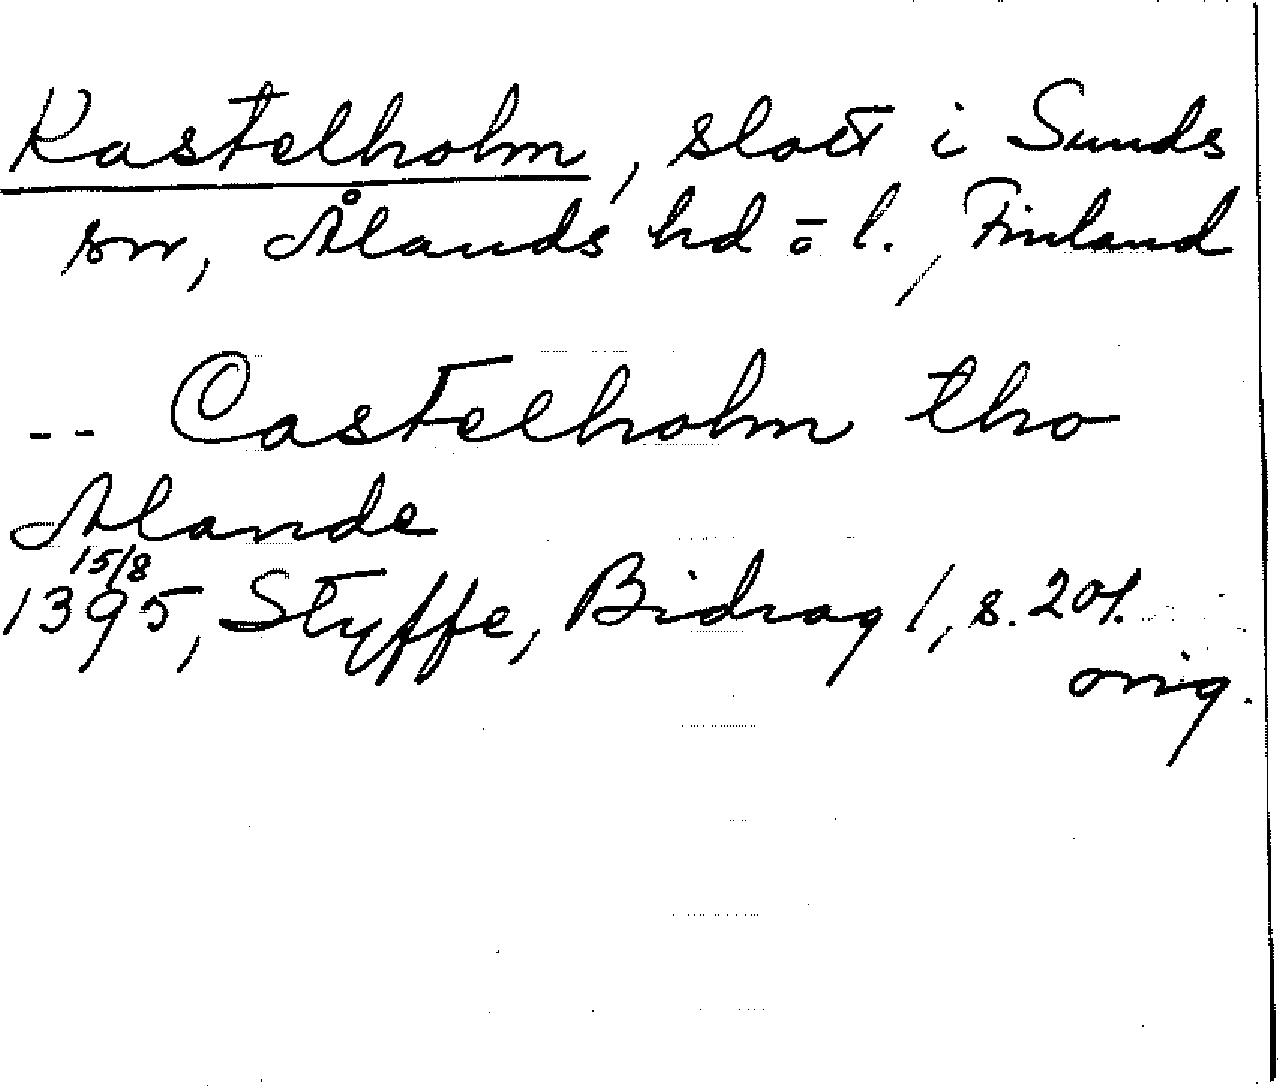 Kastelholm, slott i Sunds
sn, Ålands hd o l., Finland
-- Castelholm tho
Alande
15/8
1395, Styffe, Bidrag 1, s. 201.
orig.